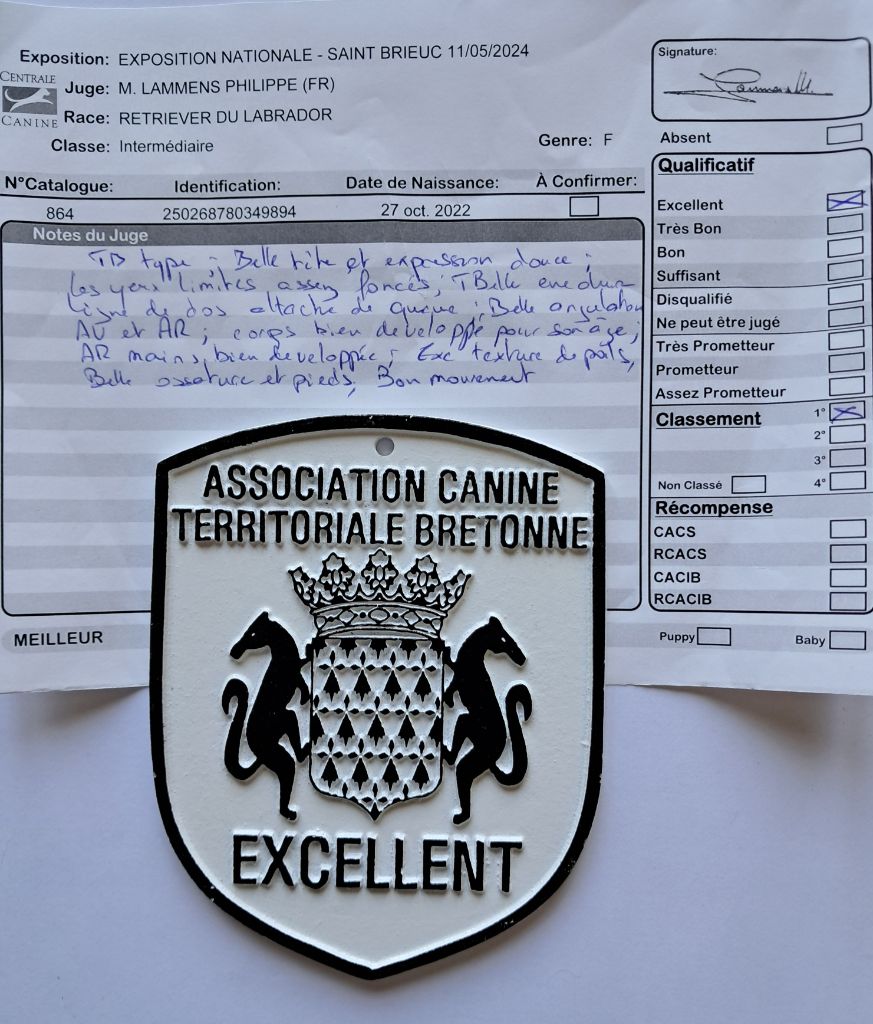 Exposition: EXPOSITION NATIONALE - SAINT BRIEUC 11/05/2024
CENTRALE
CANINE
Juge: M. LAMMENS PHILIPPE (FR)
Race: RETRIEVER DU LABRADOR
Classe: Intermédiaire
Genre: F
N°Catalogue: Identification: Date de Naissance: À Confirmer:
864 250268780349894 27 oct. 2022
Notes du Juge
TB type ; Belle tête et expression douce ;
les yeux limites assez foncés ; TBelle encolure
ligne de dos attache de queue ; Belle angulation
AV et AR ; corps bien développé pour son âge ;
AR mains bien developpée ; Exc texture de poils,
Belle ossature et pieds, Bon mouvement
Signature:
Absent
Qualificatif
Excellent
Très Bon
Bon
Suffisant
Disqualifié
Ne peut être jugé
Très Prometteur
Prometteur
Assez Prometteur
Classement 1°
2°
3°
Non Classé 4°
Récompense
CACS
RCACS
CACIB
RCACIB
MEILLEUR
Puppy Baby
ASSOCIATION CANINE
TERRITORIALE BRETONNE
EXCELLENT